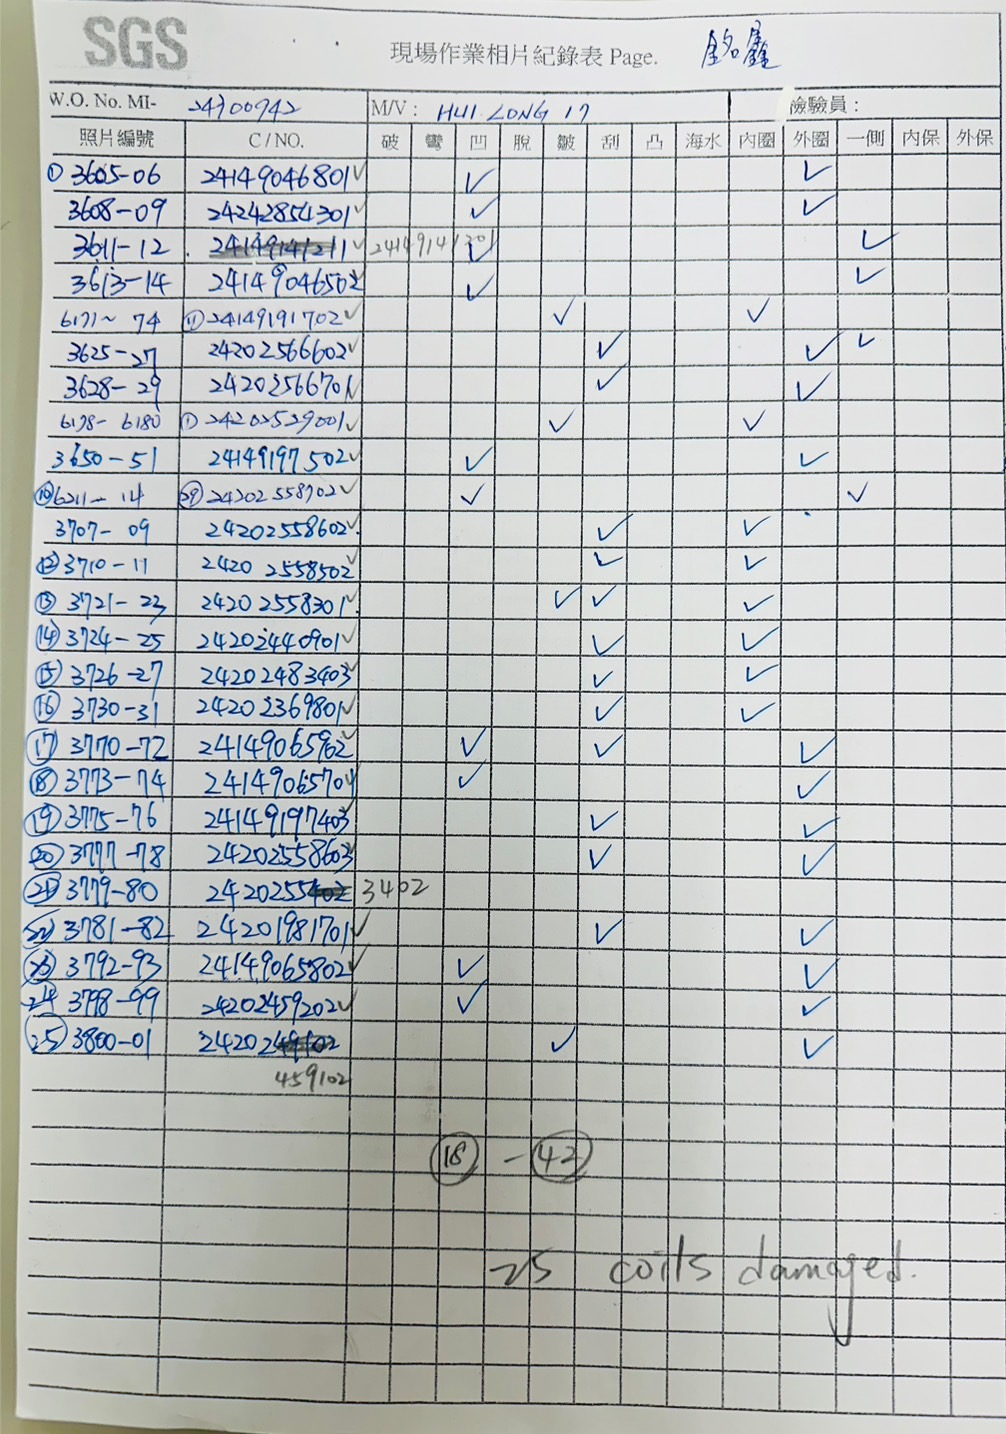 SGS
現場作業相片紀錄表 Page. 銘鑫
W.O. No. MI- 24700942 M/V : HUI LONG 17 檢驗員 :
照片編號 C / NO. 破 彎 凹 脫 皺 刮 凸 海水 內圈 外圈 一側 內保 外保
① 3605-06 24149046801 ✓ ✓ ✓
3608-09 24242854301 ✓ ✓ ✓
3611-12 24149141211 ✓ 24149141201 ✓ ✓
3613-14 24149046502 ✓ ✓ ✓
6171~ 74 ⑪ 24149191702 ✓ ✓ ✓
3625-27 24202566602 ✓ ✓ ✓ ✓
3628-29 24202566701 ✓ ✓ ✓
6178- 6180 ① 24202529001 ✓ ✓ ✓
3650-51 24149197502 ✓ ✓ ✓
⑩ 6211- 14 ㉙ 24202558702 ✓ ✓ ✓
3707-09 24202558602 ✓ ✓ ✓
⑫ 3710-11 2420 2558502 ✓ ✓ ✓
⑬ 3721-23 24202558301 ✓ ✓ ✓ ✓
⑭ 3724-25 24202440901 ✓ ✓ ✓
⑮ 3726-27 24202483403 ✓ ✓ ✓
⑯ 3730-31 24202369801 ✓ ✓ ✓
⑰ 3770-72 24149065962 ✓ ✓ ✓ ✓
⑱ 3773-74 24149065701 ✓ ✓ ✓
⑲ 3775-76 24149197403 ✓ ✓ ✓
⑳ 3777-78 24202558603 ✓ ✓ ✓
㉑ 3779-80 2420255 3402
㉒ 3781-82 24201981701 ✓ ✓ ✓
㉓ 3792-93 24149065802 ✓ ✓ ✓
24 3798-99 24202459202 ✓ ✓ ✓
㉕ 3800-01 24202 ✓ ✓
459102
⑱ - ㊷
25 coils damaged.